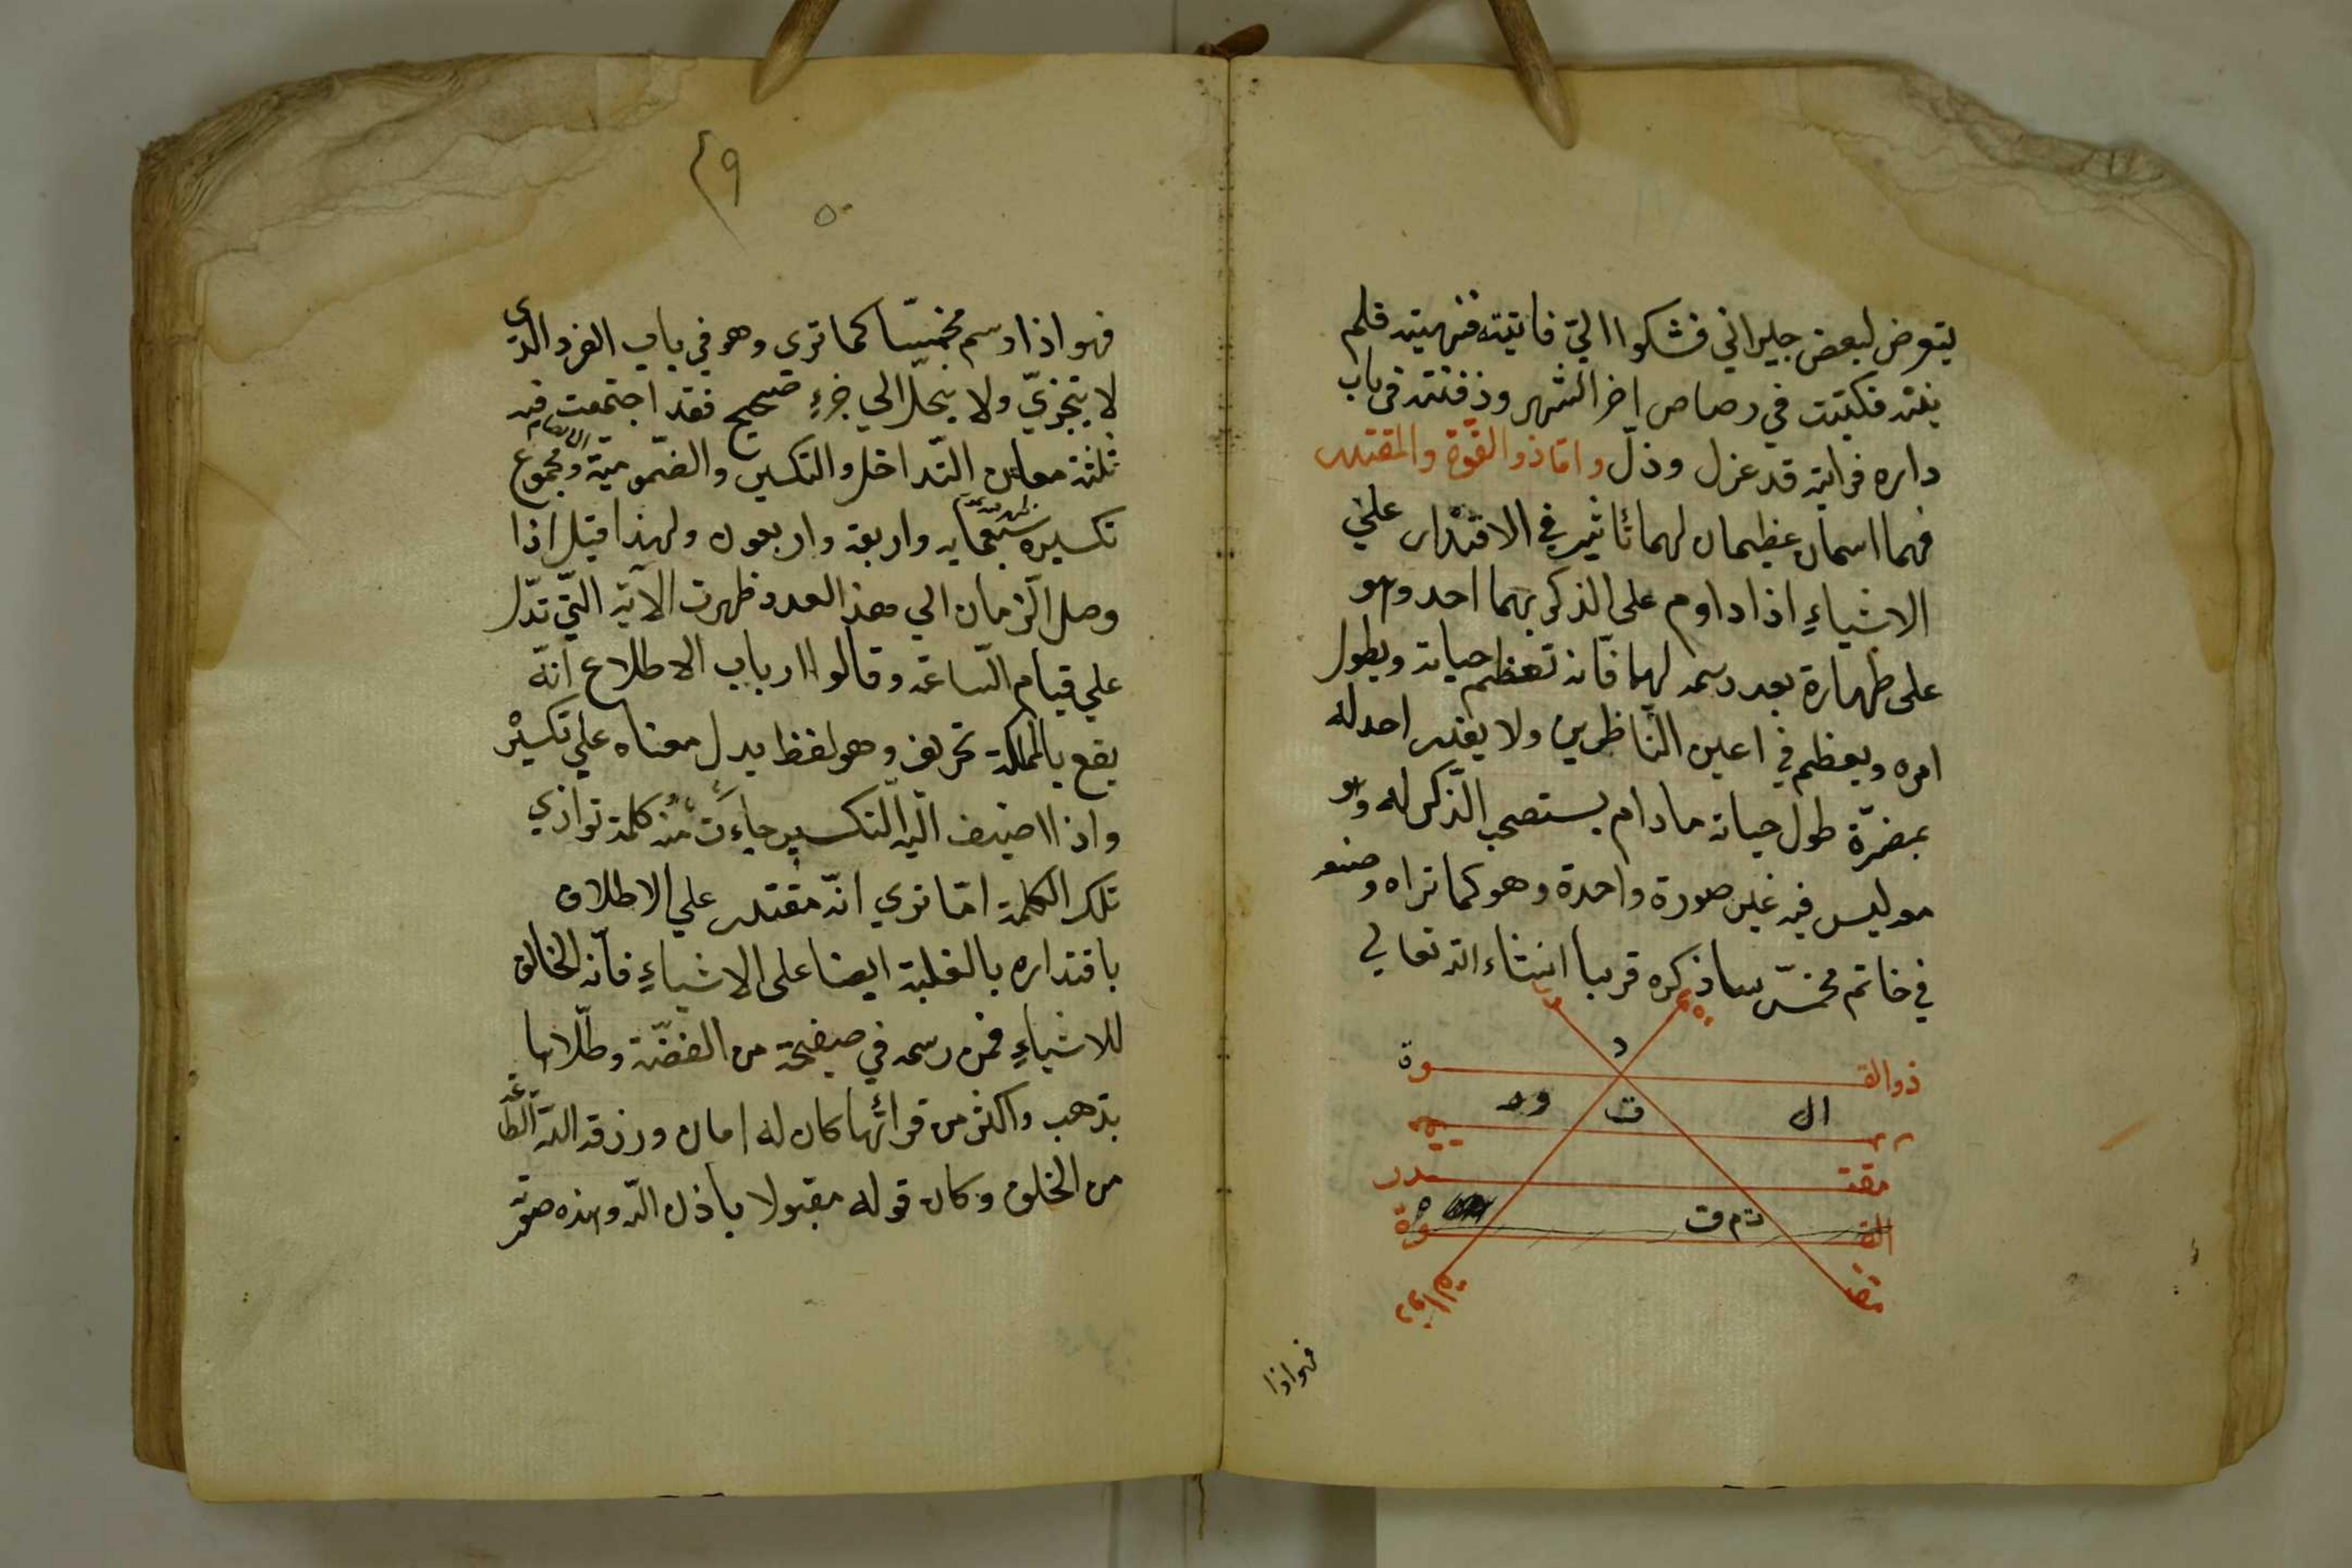 يتعرض لبعض جيراني فشكوا اليّ فاتيته فنهيته فلم
ينته فكتبت في رصاص اخر الشهر ودفنته في باب
داره فرايته قد عزل وذلّ وامّا ذو القوّة والمقتدر
فهما اسمان عظيمان لهما تأثير في الاقتدار علي
الاشياءِ اذا داوم على الذكر بهما احد وهو
على طهارة بعد رسمه لهما فانه تعظم حياته ويطول
امره ويعظم في اعين النّاظرين ولا يقدر احد له
بمضرّة طول حياته ما دام يستصحب الذّكر له وهو
معه ليس فيه غير صورة واحدة وهو كما تراه وضعه
في خاتم مخمّس ساذكره قريبا انشاء الله تعالي
ذوالقـ وة
د
ال ت ود
مقتـ ـدر
القـ وة
ت م ق
فهو اذا
٤٩
٥٠
فهو اذا رسم مخمّسا كما تري وهو في باب الفرد الذي
لا يتجزيّ ولا ينحلّ الي جزءٍ صحيح فقد اجتمعت فيه
ثلثة معان التّداخل والتكسير والضّموميّة ومجموع
تكسيره سبعمايه واربعة واربعون ولهذا قيل اذا
وصل الّزمان الي هذ العدد ظهرت الآية الّتي تدّل
علي قيام السّاعة وقالوا ارباب الاطلاع انّه
يقع بالمملكة تحريف وهو لفظ يدل معناه علي تكسيْر
واذا اضيف اليه التكسير جاءت منه كلمة توازي
تلك الكلمة امّا تري انّه مقتدر علي الاطلاق
باقتداره بالغلبة ايضا على الاشياءِ فانّه الخالق
للاشياءِ فمن رسمه في صفيحة من الفضّة وطلّاها
بذهب واكثر من قرائتها كان له امان ورزقه اللّه الطّاعة
من الخلق وكان قوله مقبولا باذن اللّه وهذه صورته